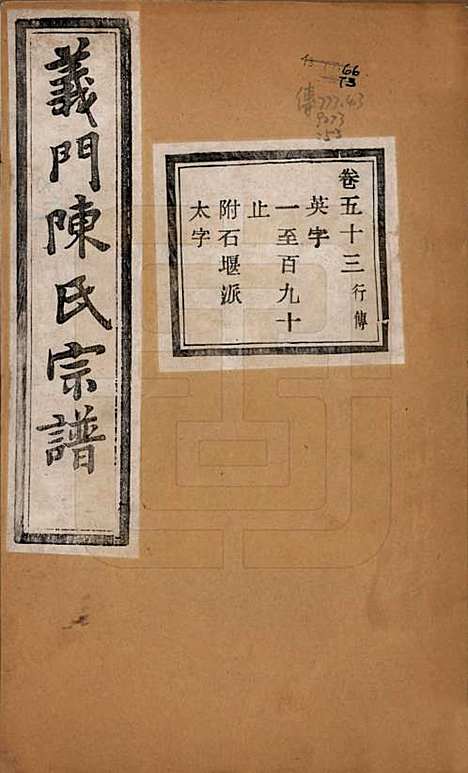 義門陳氏宗譜
卷五十三 行傳
英字
一至百九十
止
附石堰派
太字
66
73